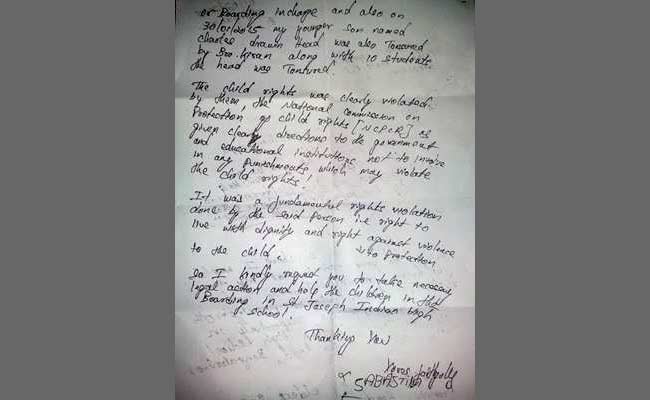 or Boarding incharge and also on
30/01/2015 my younger son named
charles drawn Head was also Tonsured
by Bro. Kiran along with 10 students.
the head was Tontured.
The child rights was clearly violated
by them, the National commission on
Protection go child rights [NCPCR] is
given clearly directions to the government
and educational institutions not to invoive
in any punishments which may violate
the child rights!
It was a fundamental rights violation
done by the said person i.e right to
live with dignity and right against violence
to the child. & to Protection
so I kindly request you to take necessary
legal action and help the children in the
Boarding in St Joseph Indian high
school.
Thankyo You
Yours faithfully
SABASTI